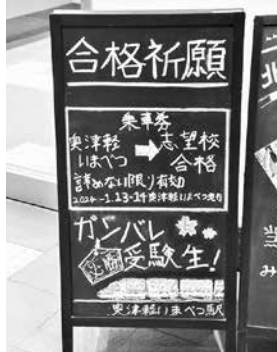 合格祈願
乗車券
奥津軽
いまべつ
➡
志望校
合格
諦めない限り有効
2024.-1.13-14奥津軽いまべつ発行
ガンバレ
受験生!
奥津軽いまべつ駅
北
当
み